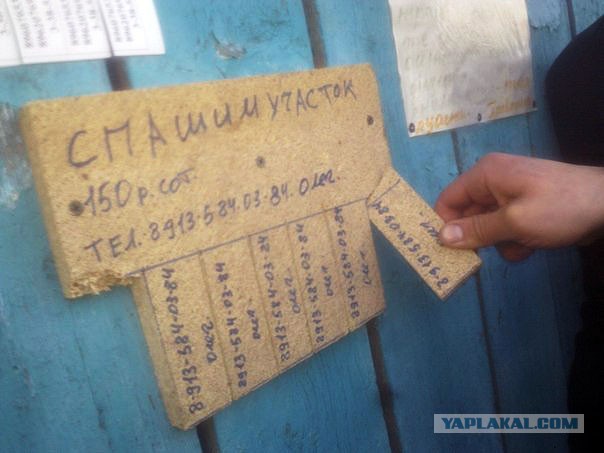 СПАШИМ УЧАСТОК
150 р. сот.
ТЕЛ. 8913-584-03-84 Олег.
8-913-584-03-84
Олег
8913-584-03-84
Олег.
8913-584-03-84
Олег.
8913-584-03-84
Олег.
8913-584-03-84
Олег.
8-913-584-03-84
YAPLAKAL.COM